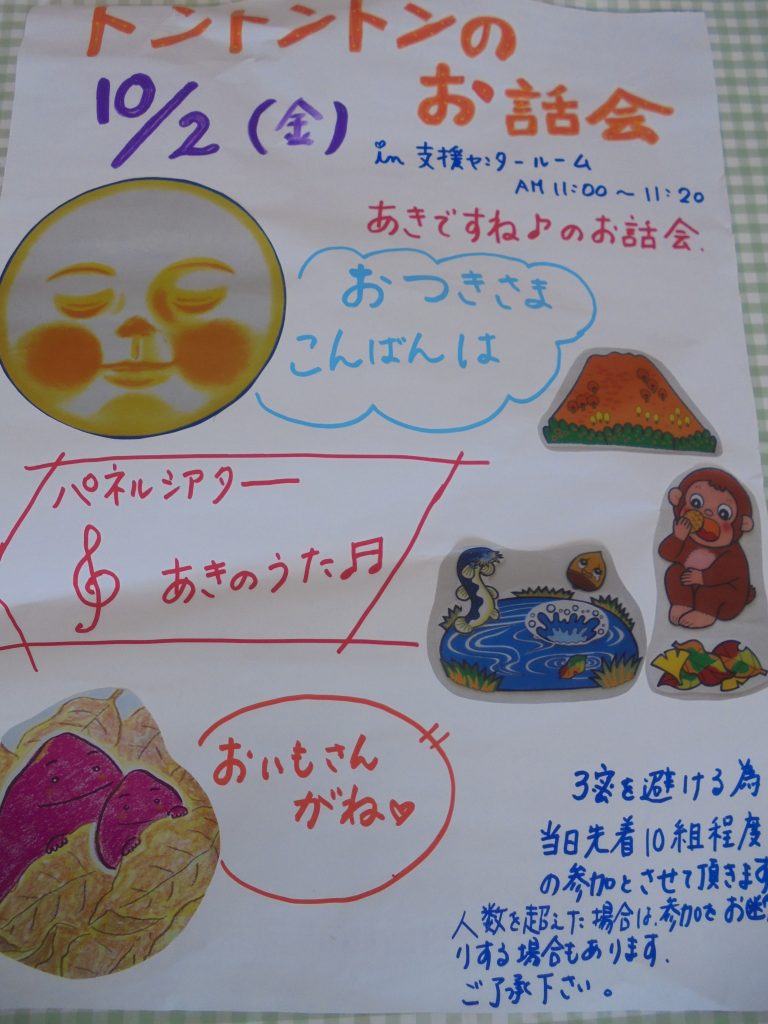 トントントンの
お話会
10/2(金)
in 支援センタールーム
AM 11:00〜11:20
あきですね♪のお話会.
おつきさま
こんばんは
パネルシアター
あきのうた♬
おいもさん
がね♡
3密を避ける為
当日先着10組程度
の参加とさせて頂きます
人数を超えた場合は、参加をお断
りする場合もあります.
ご了承下さい。